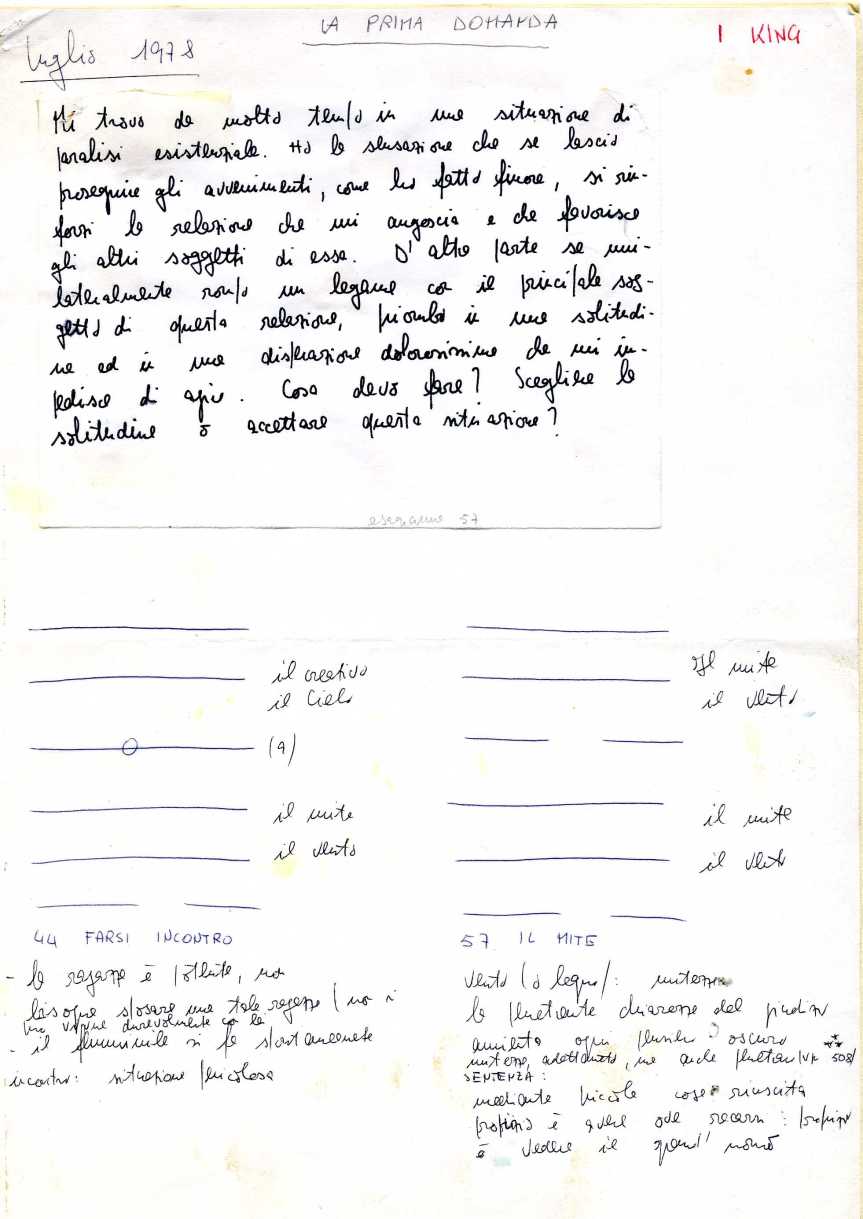 LA PRIMA DOMANDA
I KING
luglio 1978
Mi trovo da molto tempo in una situazione di
paralisi esistenziale. Ho la sensazione che se lascio
proseguire gli avvenimenti, come ho fatto finora, si rin-
forzi la relazione che mi angoscia e che favorisce
gli altri soggetti di essa. D'altra parte se uni-
lateralmente rompo un legame con il principale sog-
getto di questa relazione, piombo in una solitudi-
ne ed in una disperazione dolorosissima che mi im-
pedisce di agire. Cosa devo fare? Scegliere la
solitudine o accettare questa situazione?
esagramma 57
il creativo
il cielo
(9)
il mite
il vento
44 FARSI INCONTRO
- la ragazza è potente, non
bisogna sposare una tale ragazza (non si
può vivere durevolmente con lei
- il femminile si fa spontaneamente
incontro: situazione pericolosa
Il mite
il vento
il mite
il vento
57 IL MITE
vento (o legno): mitezza
la penetrante chiarezza del giudizio
annienta ogni oscuro
mitezza, adattamento, ma anche 508)
SENTENZA:
mediante piccole cose riuscita
propizio è avere ove recarsi: propizio
è vedere il grand'uomo